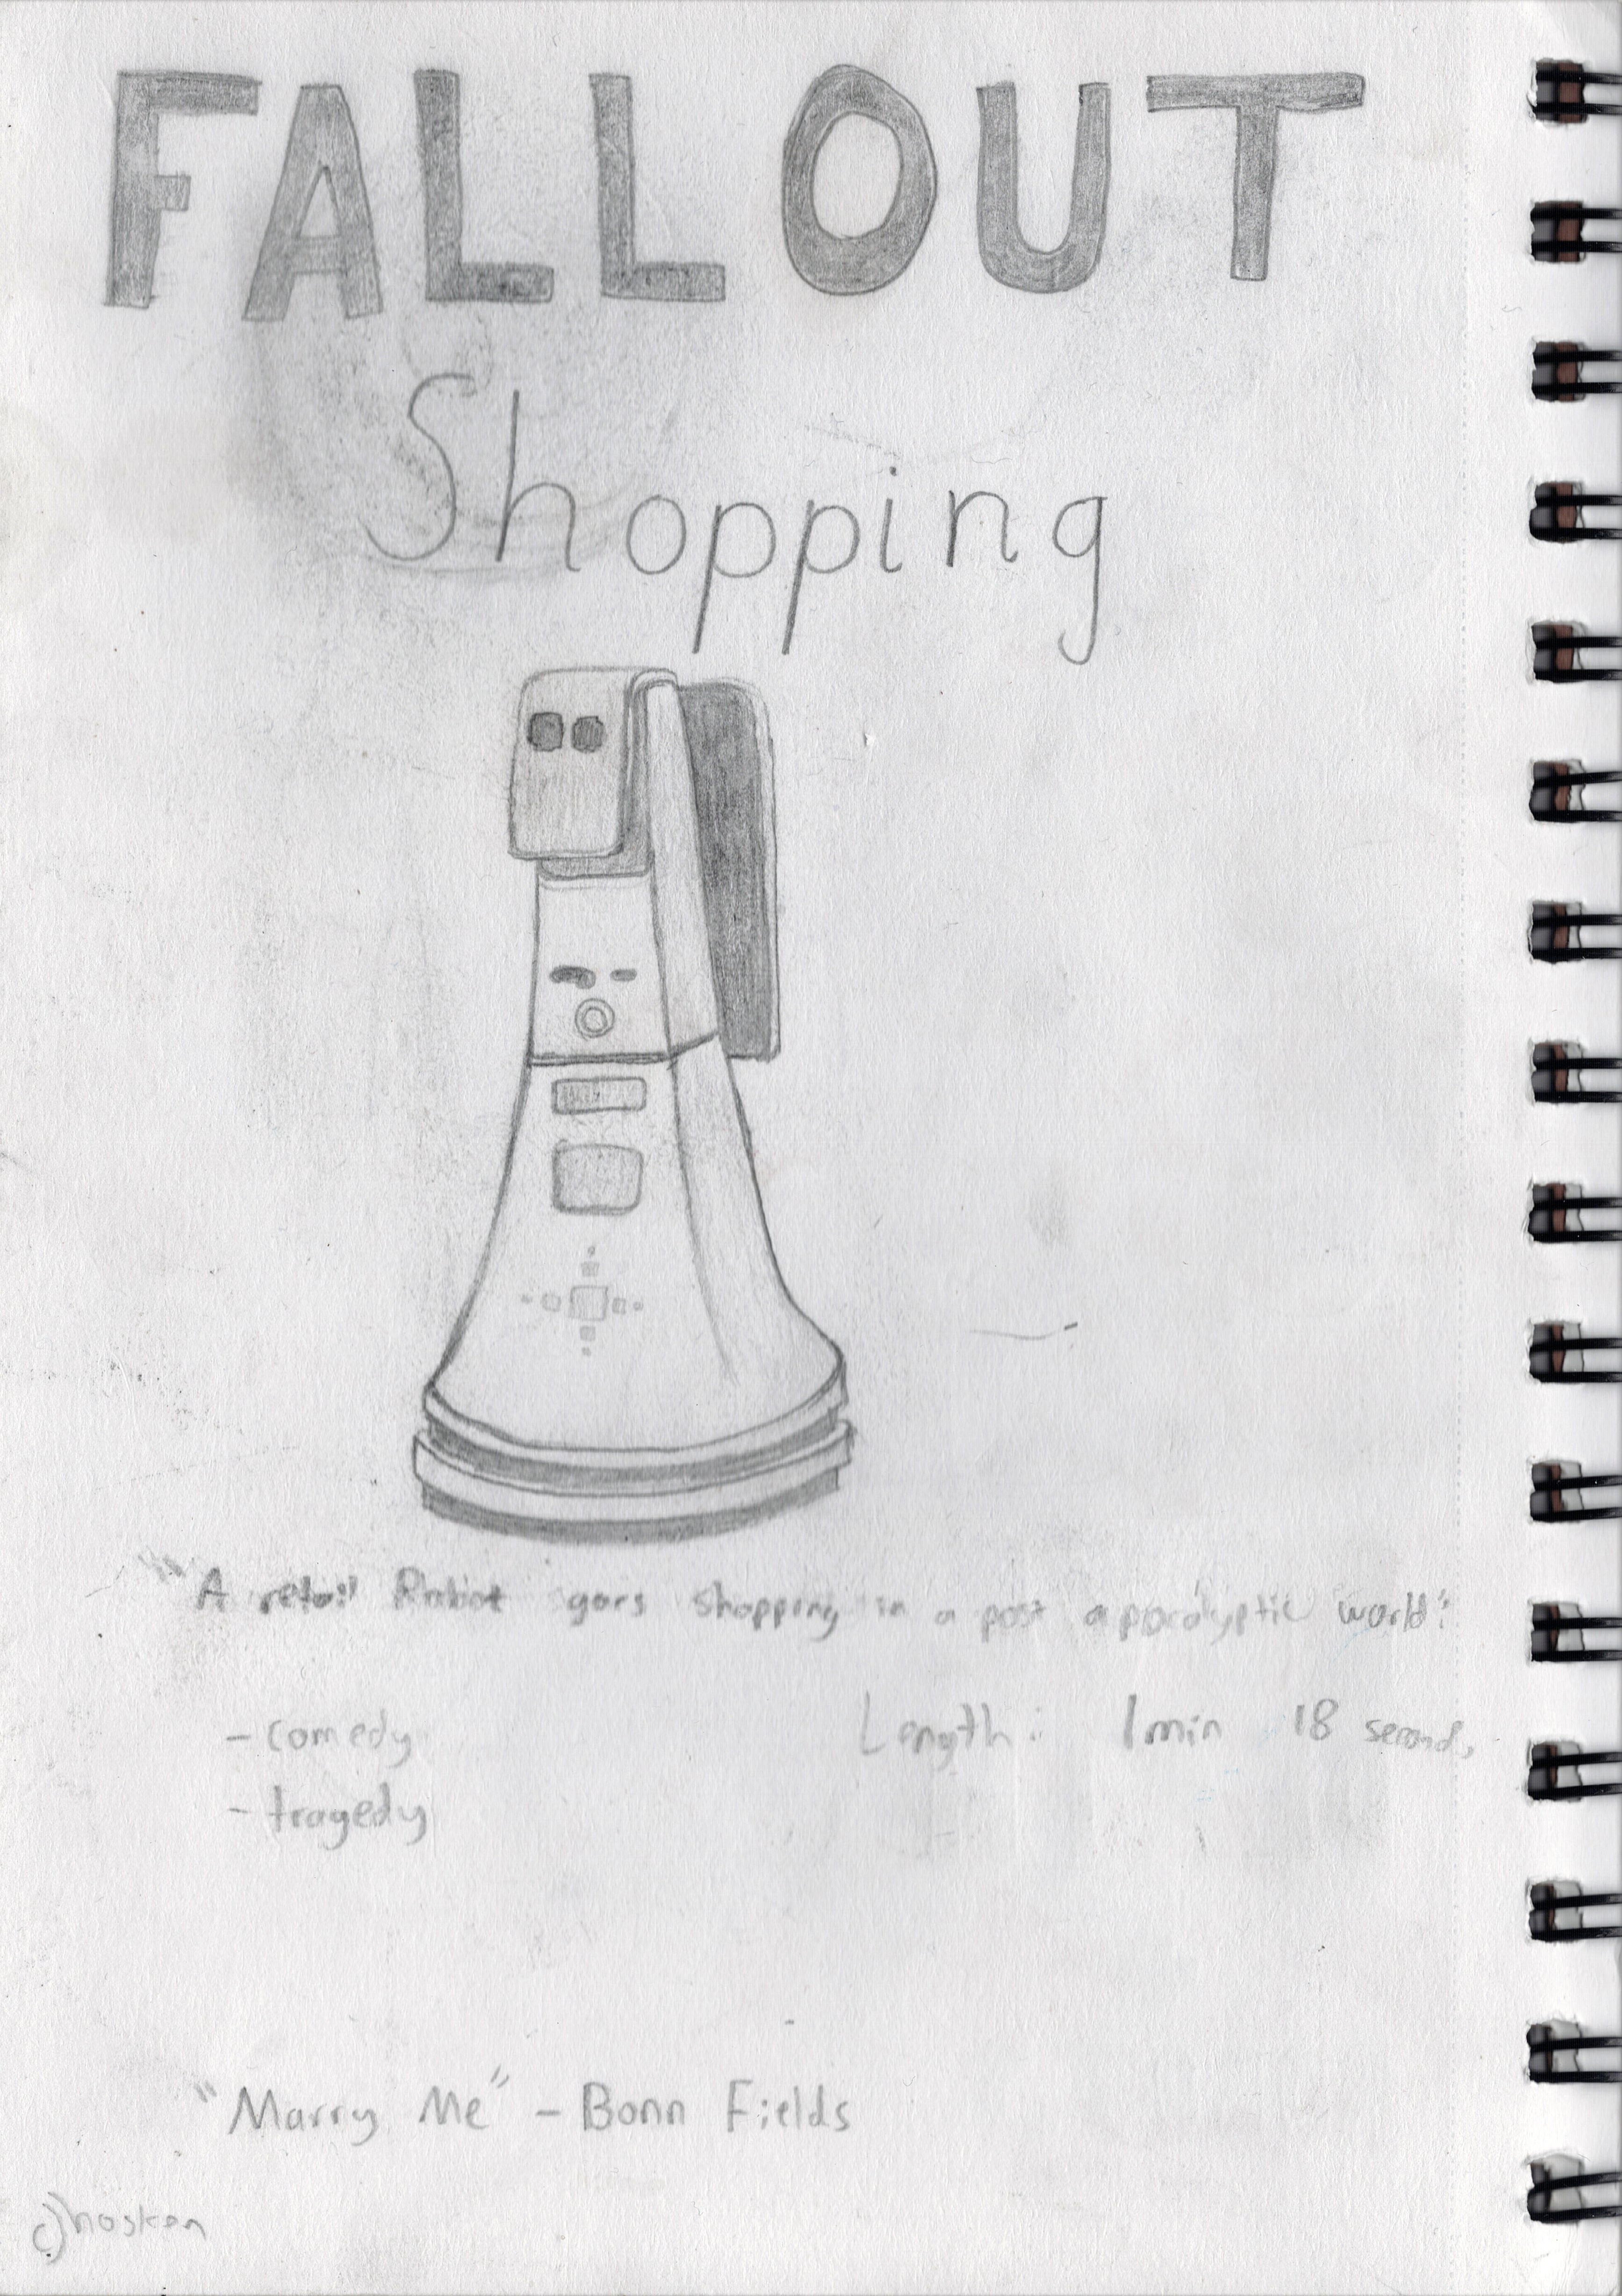 FALLOUT
Shopping
"A retail Robot goes shopping in a post apocalyptic world"
- comedy
Length: 1min 18 seconds
- tragedy
"Marry Me" - Bonn Fields